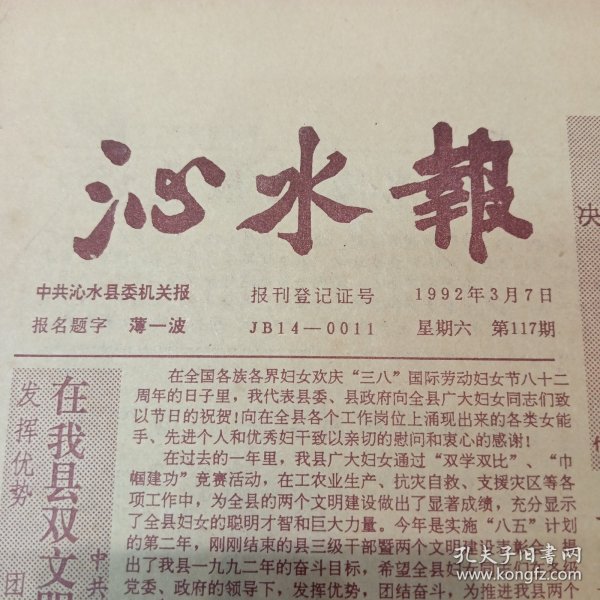 沁水報
中共沁水县委机关报
报刊登记证号
1992年3月7日
报名题字 薄一波
JB14—0011
星期六 第117期
决
在我县双文明
发挥优势
团
中共
在全国各族各界妇女欢庆“三八”国际劳动妇女节八十二
周年的日子里，我代表县委、县政府向全县广大妇女同志们致
以节日的祝贺！向在全县各个工作岗位上涌现出来的各类女能
手、先进个人和优秀妇干致以亲切的慰问和衷心的感谢！
在过去的一年里，我县广大妇女通过“双学双比”、“巾
帼建功”竞赛活动，在工农业生产、抗灾自救、支援灾区等各
项工作中，为全县的两个文明建设做出了显著成绩，充分显示
了全县妇女的聪明才智和巨大力量。今年是实施“八五”计划
的第二年，刚刚结束的县三级干部暨两个文明建设表彰会，提
出了我县一九九二年的奋斗目标，希望全县妇女同
党委、政府的领导下，发挥优势，团结奋斗，为推进我县两个
孔夫子旧书网